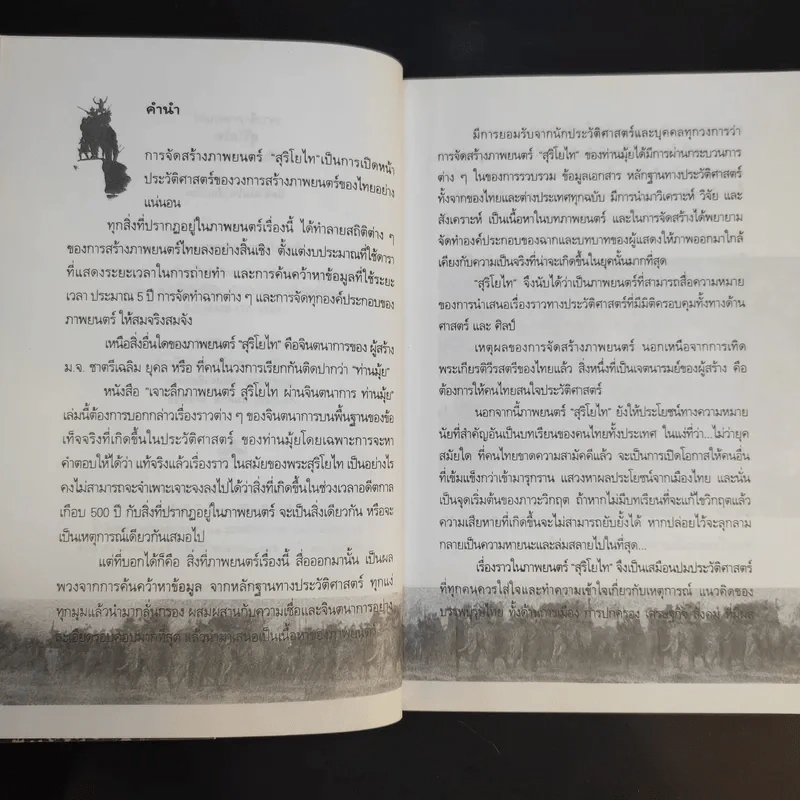 คำนำ
การจัดสร้างภาพยนตร์ "สุริโยไท"เป็นการเปิดหน้า
ประวัติศาสตร์ของวงการสร้างภาพยนตร์ของไทยอย่าง
แน่นอน
ทุกสิ่งที่ปรากฏอยู่ในภาพยนตร์เรื่องนี้ ได้ทำลายสถิติต่าง ๆ
ของการสร้างภาพยนตร์ไทยลงอย่างสิ้นเชิง ตั้งแต่งบประมาณที่ใช้ดารา
ที่แสดงระยะเวลาในการถ่ายทำ และการค้นคว้าหาข้อมูลที่ใช้ระยะ
เวลา ประมาณ 5 ปี การจัดทำฉากต่าง ๆ และการจัดทุกองค์ประกอบของ
ภาพยนตร์ ให้สมจริงสมจัง
เหนือสิ่งอื่นใดของภาพยนตร์ "สุริโยไท" คือจินตนาการของ ผู้สร้าง
ม.จ. ชาตรีเฉลิม ยุคล หรือ ที่คนในวงการเรียกกันติดปากว่า "ท่านมุ้ย"
หนังสือ "เจาะลึกภาพยนตร์ สุริโยไท ผ่านจินตนาการ ท่านมุ้ย"
เล่มนี้ต้องการบอกกล่าวเรื่องราวต่าง ๆ ของจินตนาการบนพื้นฐานของข้อ
เท็จจริงที่เกิดขึ้นในประวัติศาสตร์ ของท่านมุ้ยโดยเฉพาะการจะหา
คำตอบให้ได้ว่า แท้จริงแล้วเรื่องราว ในสมัยของพระสุริโยไท เป็นอย่างไร
คงไม่สามารถจะจำเพาะเจาะจงลงไปได้ว่าสิ่งที่เกิดขึ้นในช่วงเวลาอดีตกาล
เกือบ 500 ปี กับสิ่งที่ปรากฏอยู่ในภาพยนตร์ จะเป็นสิ่งเดียวกัน หรือจะ
เป็นเหตุการณ์เดียวกันเสมอไป
แต่ที่บอกได้ก็คือ สิ่งที่ภาพยนตร์เรื่องนี้ สื่อออกมานั้น เป็นผล
พวงจากการค้นคว้าหาข้อมูล จากหลักฐานทางประวัติศาสตร์ ทุกแง่
ทุกมุมแล้วนำมากลั่นกรอง ผสมผสานกับความเชื่อและจินตนาการอย่าง
ละเอียดรอบคอบมากที่สุด แล้วนำมาเสนอเป็นเนื้อหาของภาพยนตร์
มีการยอมรับจากนักประวัติศาสตร์และบุคคลทุกวงการว่า
การจัดสร้างภาพยนตร์ "สุริโยไท" ของท่านมุ้ยได้มีการผ่านกระบวนการ
ต่าง ๆ ในของการรวบรวม ข้อมูลเอกสาร หลักฐานทางประวัติศาสตร์
ทั้งจากของไทยและต่างประเทศทุกฉบับ มีการนำมาวิเคราะห์ วิจัย และ
สังเคราะห์ เป็นเนื้อหาในบทภาพยนตร์ และในการจัดสร้างได้พยายาม
จัดทำองค์ประกอบของฉากและบทบาทของผู้แสดงให้ภาพออกมาใกล้
เคียงกับความเป็นจริงที่น่าจะเกิดขึ้นในยุคนั้นมากที่สุด
"สุริโยไท" จึงนับได้ว่าเป็นภาพยนตร์ที่สามารถสื่อความหมาย
ของการนำเสนอเรื่องราวทางประวัติศาสตร์ที่มีมิติครอบคุมทั้งทางด้าน
ศาสตร์ และ ศิลป์
เหตุผลของการจัดสร้างภาพยนตร์ นอกเหนือจากการเทิด
พระเกียรติวีรสตรีของไทยแล้ว สิ่งหนึ่งที่เป็นเจตนารมย์ของผู้สร้าง คือ
ต้องการให้คนไทยสนใจประวัติศาสตร์
นอกจากนี้ภาพยนตร์ "สุริโยไท" ยังให้ประโยชน์ทางความหมาย
นัยที่สำคัญอันเป็นบทเรียนของคนไทยทั้งประเทศ ในแง่ที่ว่า...ไม่ว่ายุค
สมัยใด ที่คนไทยขาดความสามัคคีแล้ว จะเป็นการเปิดโอกาสให้คนอื่น
ที่เข้มแข็งกว่าเข้ามารุกราน แสวงหาผลประโยชน์จากเมืองไทย และนั่น
เป็นจุดเริ่มต้นของภาวะวิกฤต ถ้าหากไม่มีบทเรียนที่จะแก้ไขวิกฤตแล้ว
ความเสียหายที่เกิดขึ้นจะไม่สามารถยับยั้งได้ หากปล่อยไว้จะลุกลาม
กลายเป็นความหายนะและล่มสลายไปในที่สุด...
เรื่องราวในภาพยนตร์ "สุริโยไท" จึงเป็นเสมือนปมประวัติศาสตร์
ที่ทุกคนควรใส่ใจและทำความเข้าใจเกี่ยวกับเหตุการณ์ แนวคิดของ
บรรพบุรุษไทย ทั้งด้านการเมือง การปกครอง เศรษฐกิจ สังคม ที่มีผล